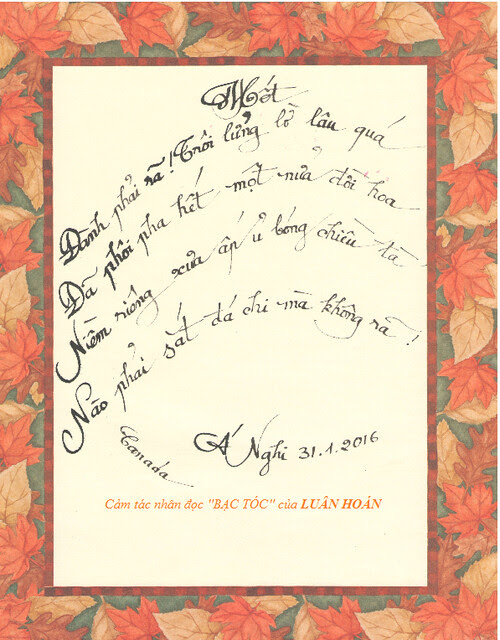 Mốt
Đành phải rã ! Trôi lửng lờ lâu quá
Đã phôi pha hết một nửa đời hoa
Niềm riêng xưa ấp ủ bóng chiều tà
Nào phải sắt đá chi mà không rã !
Canada
Á Nghi 31.1.2016
Cảm tác nhân đọc "BẠC TÓC" của LUÂN HOÁN